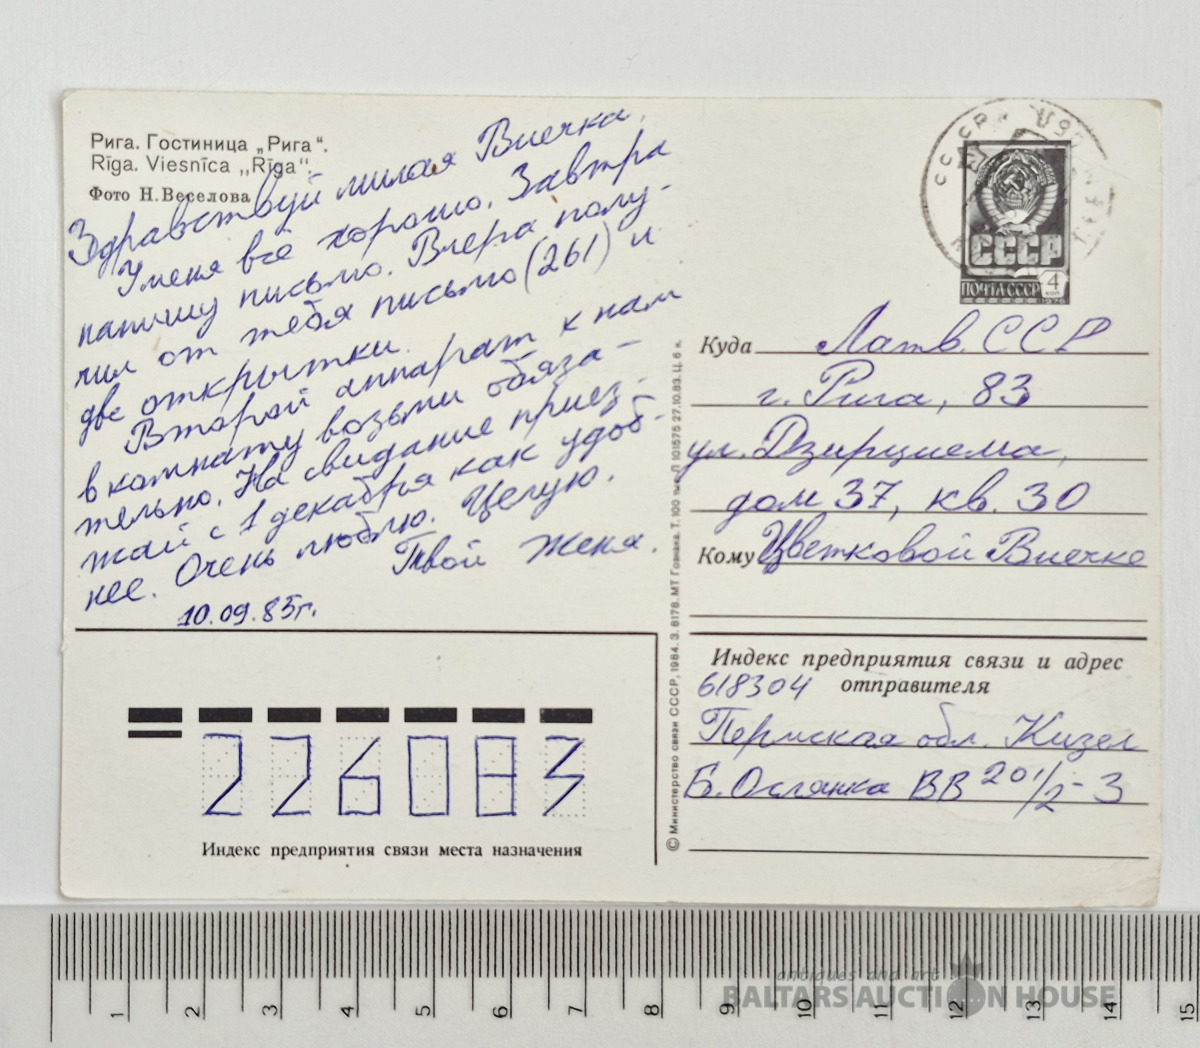 Рига. Гостиница „Рига“.
Rīga. Viesnīca „Rīga“.
Фото Н. Веселова
Здравствуй милая Виечка.
У меня всё хорошо. Завтра
напишу письмо. Вчера полу-
чил от тебя письмо (261) и
две открытки.
Второй аппарат к нам
в комнату возьми обяза-
тельно. На свидание приез-
жай с 1 декабря как удоб-
нее. Очень люблю. Целую.
Твой Женя.
10.09.85г.
СССР
ПОЧТА СССР
4
КОП
1976
Куда Латв. ССР
г. Рига, 83
ул. Дзирциема,
дом 37, кв. 30
Кому Цветковой Виечке
Индекс предприятия связи и адрес
отправителя
618304
Пермская обл. Кизел
Б. Ослянка ВВ 201/2-3
226083
Индекс предприятия связи места назначения
© Министерство связи СССР, 1984. З. 8178. МТ Гознака. Т. 100 тыс. Л 101575 27.10.83. Ц. 6 к.
1 2 3 4 5 6 7 8 9 10 11 12 13 14 15
antiques and art
BALTARS AUCTION HOUSE